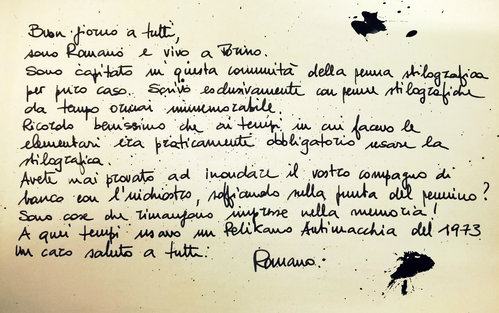 Buon giorno a tutti,
sono Romano e vivo a Torino.
Sono capitato in questa comunità della penna stilografica
per puro caso. Scrivo esclusivamente con penne stilografiche
da tempo oramai immemorabile.
Ricordo benissimo che ai tempi in cui facevo le
elementari era praticamente obbligatorio usare la
stilografica.
Avete mai provato ad inondare il vostro compagno di
banco con l'inchiostro, soffiando sulla punta del pennino?
Sono cose che rimangono impresse nella memoria!
A quei tempi usavo un Pelikano Antimacchia del 1973
Un caro saluto a tutti.
Romano.